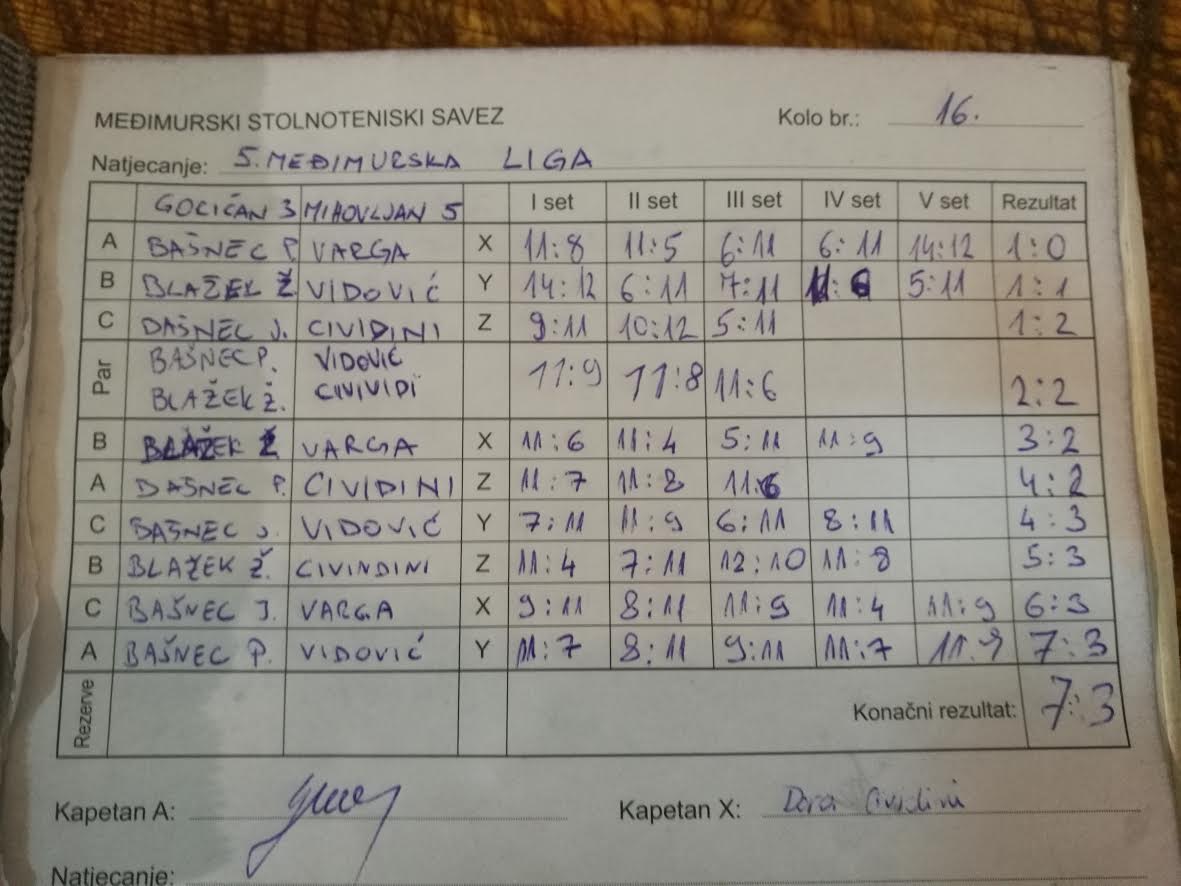 MEĐIMURSKI STOLNOTENISKI SAVEZ Kolo br.: 16.
Natjecanje: 5. MEĐIMURSKA LIGA
GOCIČAN 3 MIHOVLJAN 5 I set II set III set IV set V set Rezultat
A BAŠNEC P. VARGA X 11:8 11:5 6:11 6:11 14:12 1:0
B BLAŽEK Ž VIDOVIĆ Y 14:12 6:11 7:11 11:6 5:11 1:1
C BAŠNEC J. CIVIDINI Z 9:11 10:12 5:11 1:2
Par BAŠNEC P. VIDOVIĆ 11:9 11:8 11:6 2:2
BLAŽEK Ž. CIVIVIDI
B BLAŽEK Ž VARGA X 11:6 11:4 5:11 11:9 3:2
A BAŠNEC P. CIVIDINI Z 11:7 11:8 11:6 4:2
C BAŠNEC J. VIDOVIĆ Y 7:11 11:9 6:11 8:11 4:3
B BLAŽEK Ž. CIVINDINI Z 11:4 7:11 12:10 11:8 5:3
C BAŠNEC J. VARGA X 9:11 8:11 11:9 11:4 11:9 6:3
A BAŠNEC P. VIDOVIĆ Y 11:7 8:11 9:11 11:7 11:9 7:3
Rezerve Konačni rezultat: 7:3
Kapetan A: Kapetan X: Dora Cividini
Natjecanje: